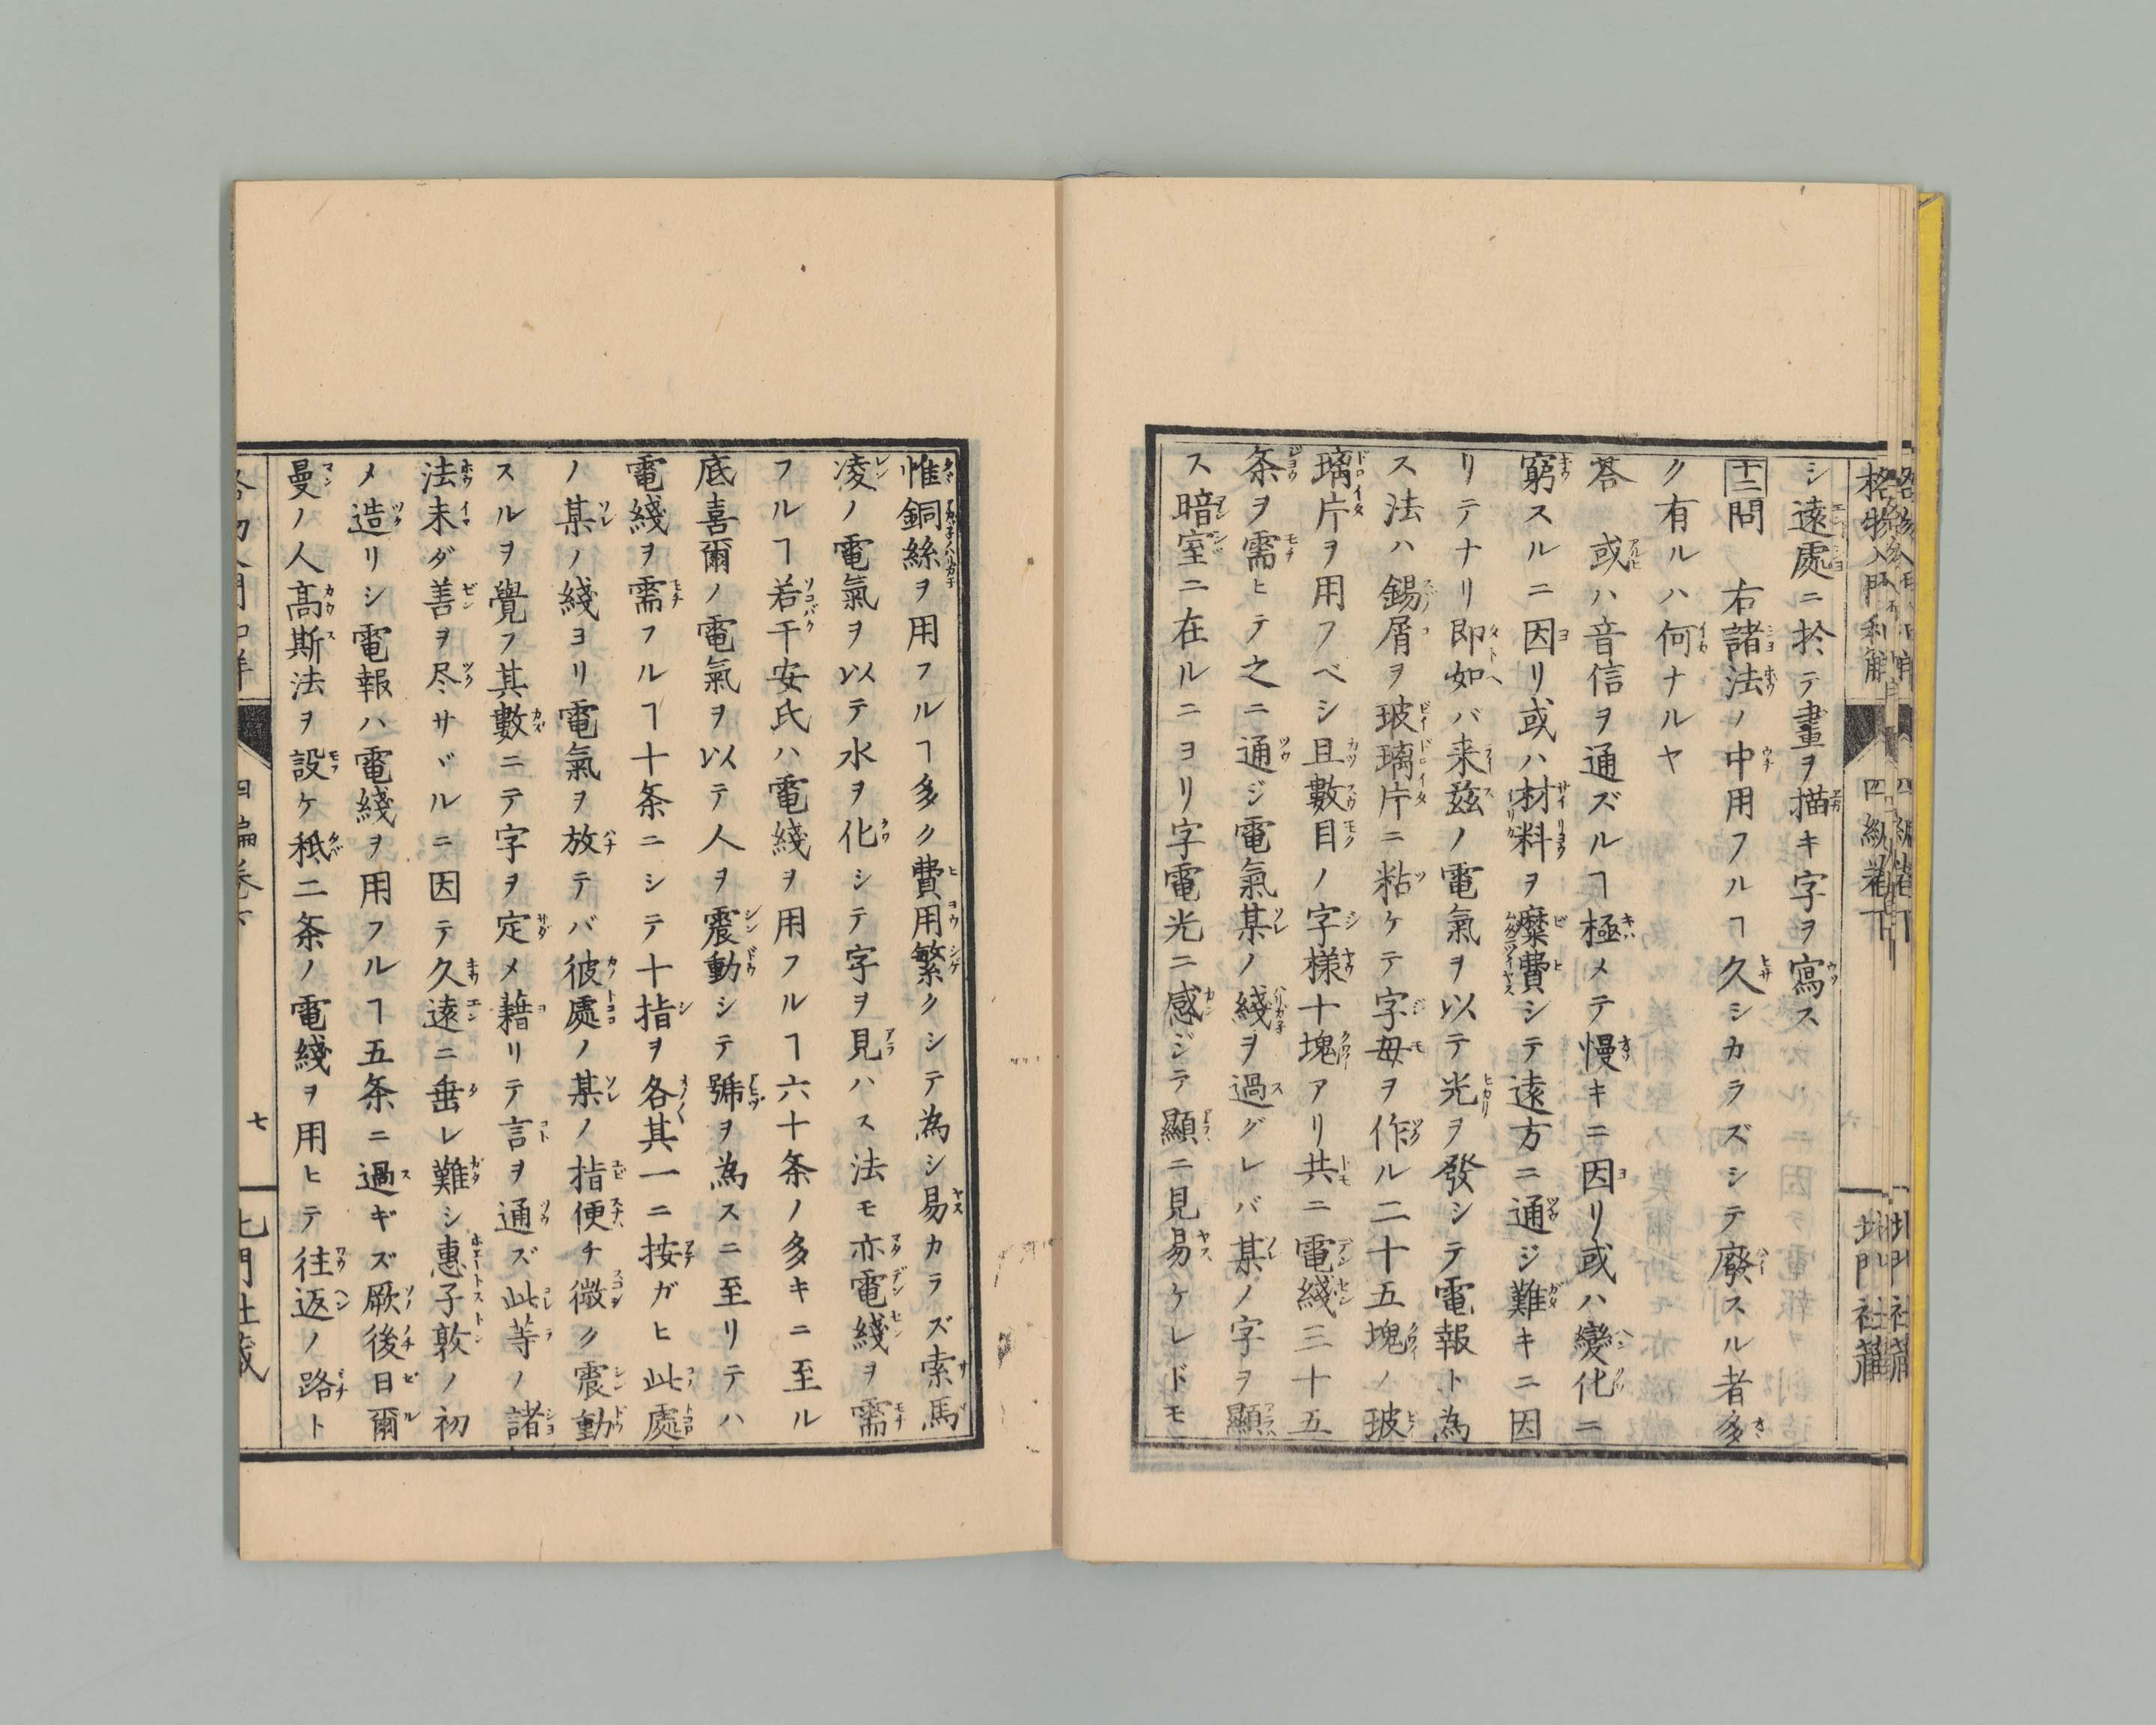 シ遠處ニ於テ畫ヲ描キ字ヲ寫ス
十二問　右諸法ノ中用フルヿ久シカラズシテ廢スル者多
ク有ルハ何ナルヤ
答　或ハ音信ヲ通ズルヿ極メテ慢キニ因リ或ハ變化ニ
窮スルニ因リ或ハ材料ヲ糜費シテ遠方ニ通ジ難キニ因
リテナリ即如バ来玆ノ電氣ヲ以テ光ヲ發シテ電報ト為
ス法ハ錫屑ヲ玻璃片ニ粘ケテ字毋ヲ作ル二十五塊ノ玻
璃片ヲ用フベシ且數目ノ字様十塊アリ共ニ電綫三十五
条ヲ需ヒテ之ニ通ジ電氣某ノ綫ヲ過グレバ某ノ字ヲ顯
ス暗室ニ在ルニヨリ字電光ニ感ジテ顯ニ見易ケレドモ
惟銅絲ヲ用フルヿ多ク費用繁クシテ為シ易カラズ索馬
凌ノ電氣ヲ以テ水ヲ化シテ字ヲ見ハス法モ亦電綫ヲ需
フルヿ若干安氏ハ電綫ヲ用フルヿ六十条ノ多キニ至ル
底喜爾ノ電氣ヲ以テ人ヲ震動シテ號ヲ為スニ至リテハ
電綫ヲ需フルヿ十条ニシテ十指ヲ各其一ニ按ガヒ此處
ノ某ノ綫ヨリ電氣ヲ放テバ彼處ノ某ノ指便チ微ク震動
スルヲ覺フ其數ニテ字ヲ定メ藉リテ言ヲ通ズ此等ノ諸
法未ダ善ヲ尽サヾルニ因テ久遠ニ垂レ難シ惠子敦ノ初
メ造リシ電報ハ電綫ヲ用フルヿ五条ニ過ギズ厥後日爾
曼ノ人髙斯法ヲ設ケ秪二条ノ電綫ヲ用ヒテ往返ノ路ト
七